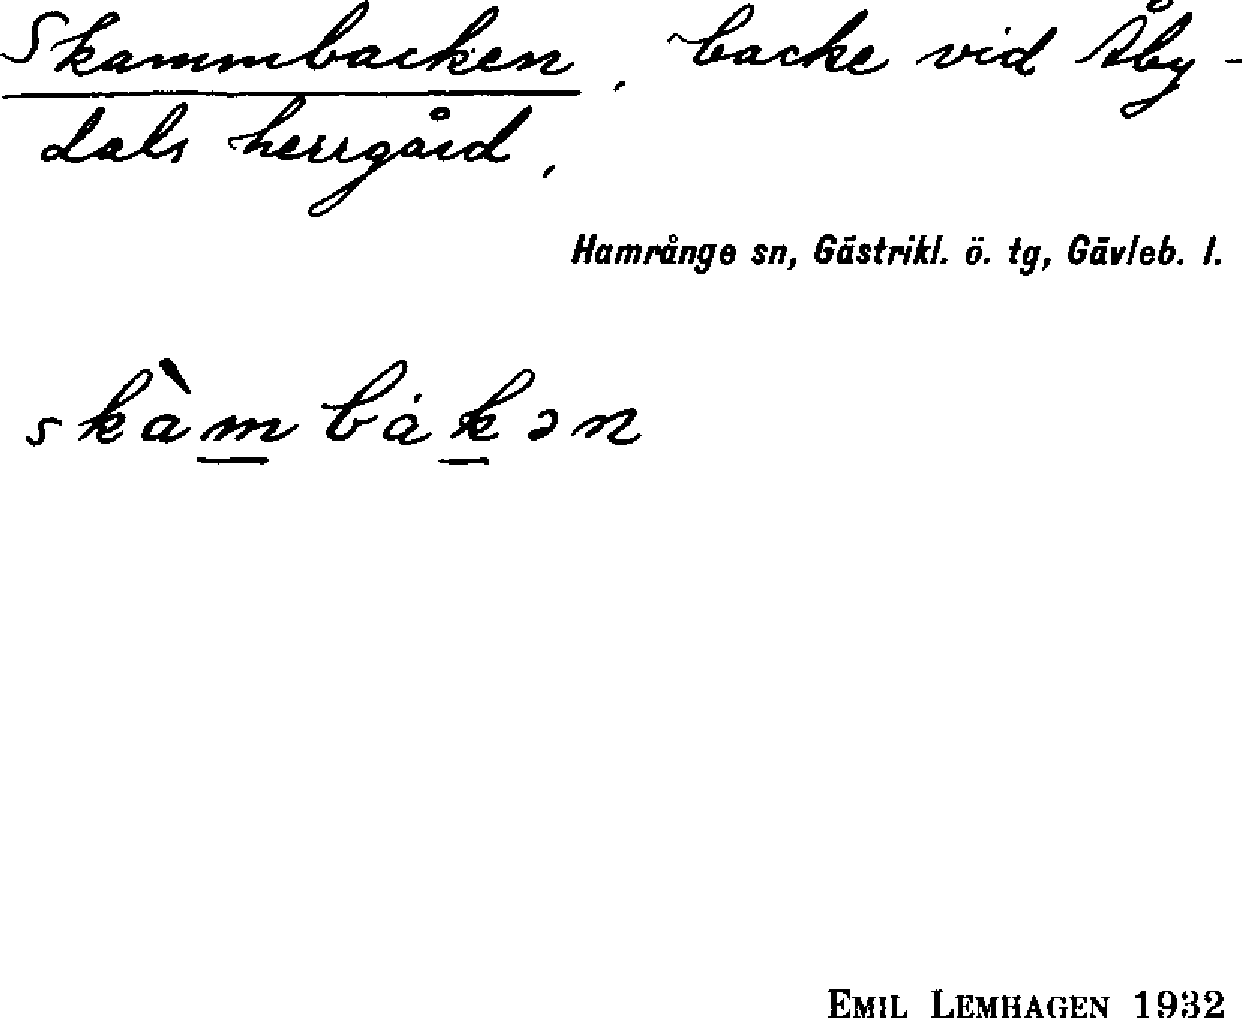 Skammbacken, backe vid Åby-
dals herrgård,
Hamrånge sn, Gästrikl. ö. tg, Gävleb. l.
skàm̲bȧk̲ən
EMIL LEMHAGEN 1932